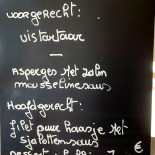 voorgerecht:
vistartaar
—
Asperges Met zalm
mousselinesaus
Hoofdgerecht:
filet puur haasje Met
sjalottensaus
Dessert
€